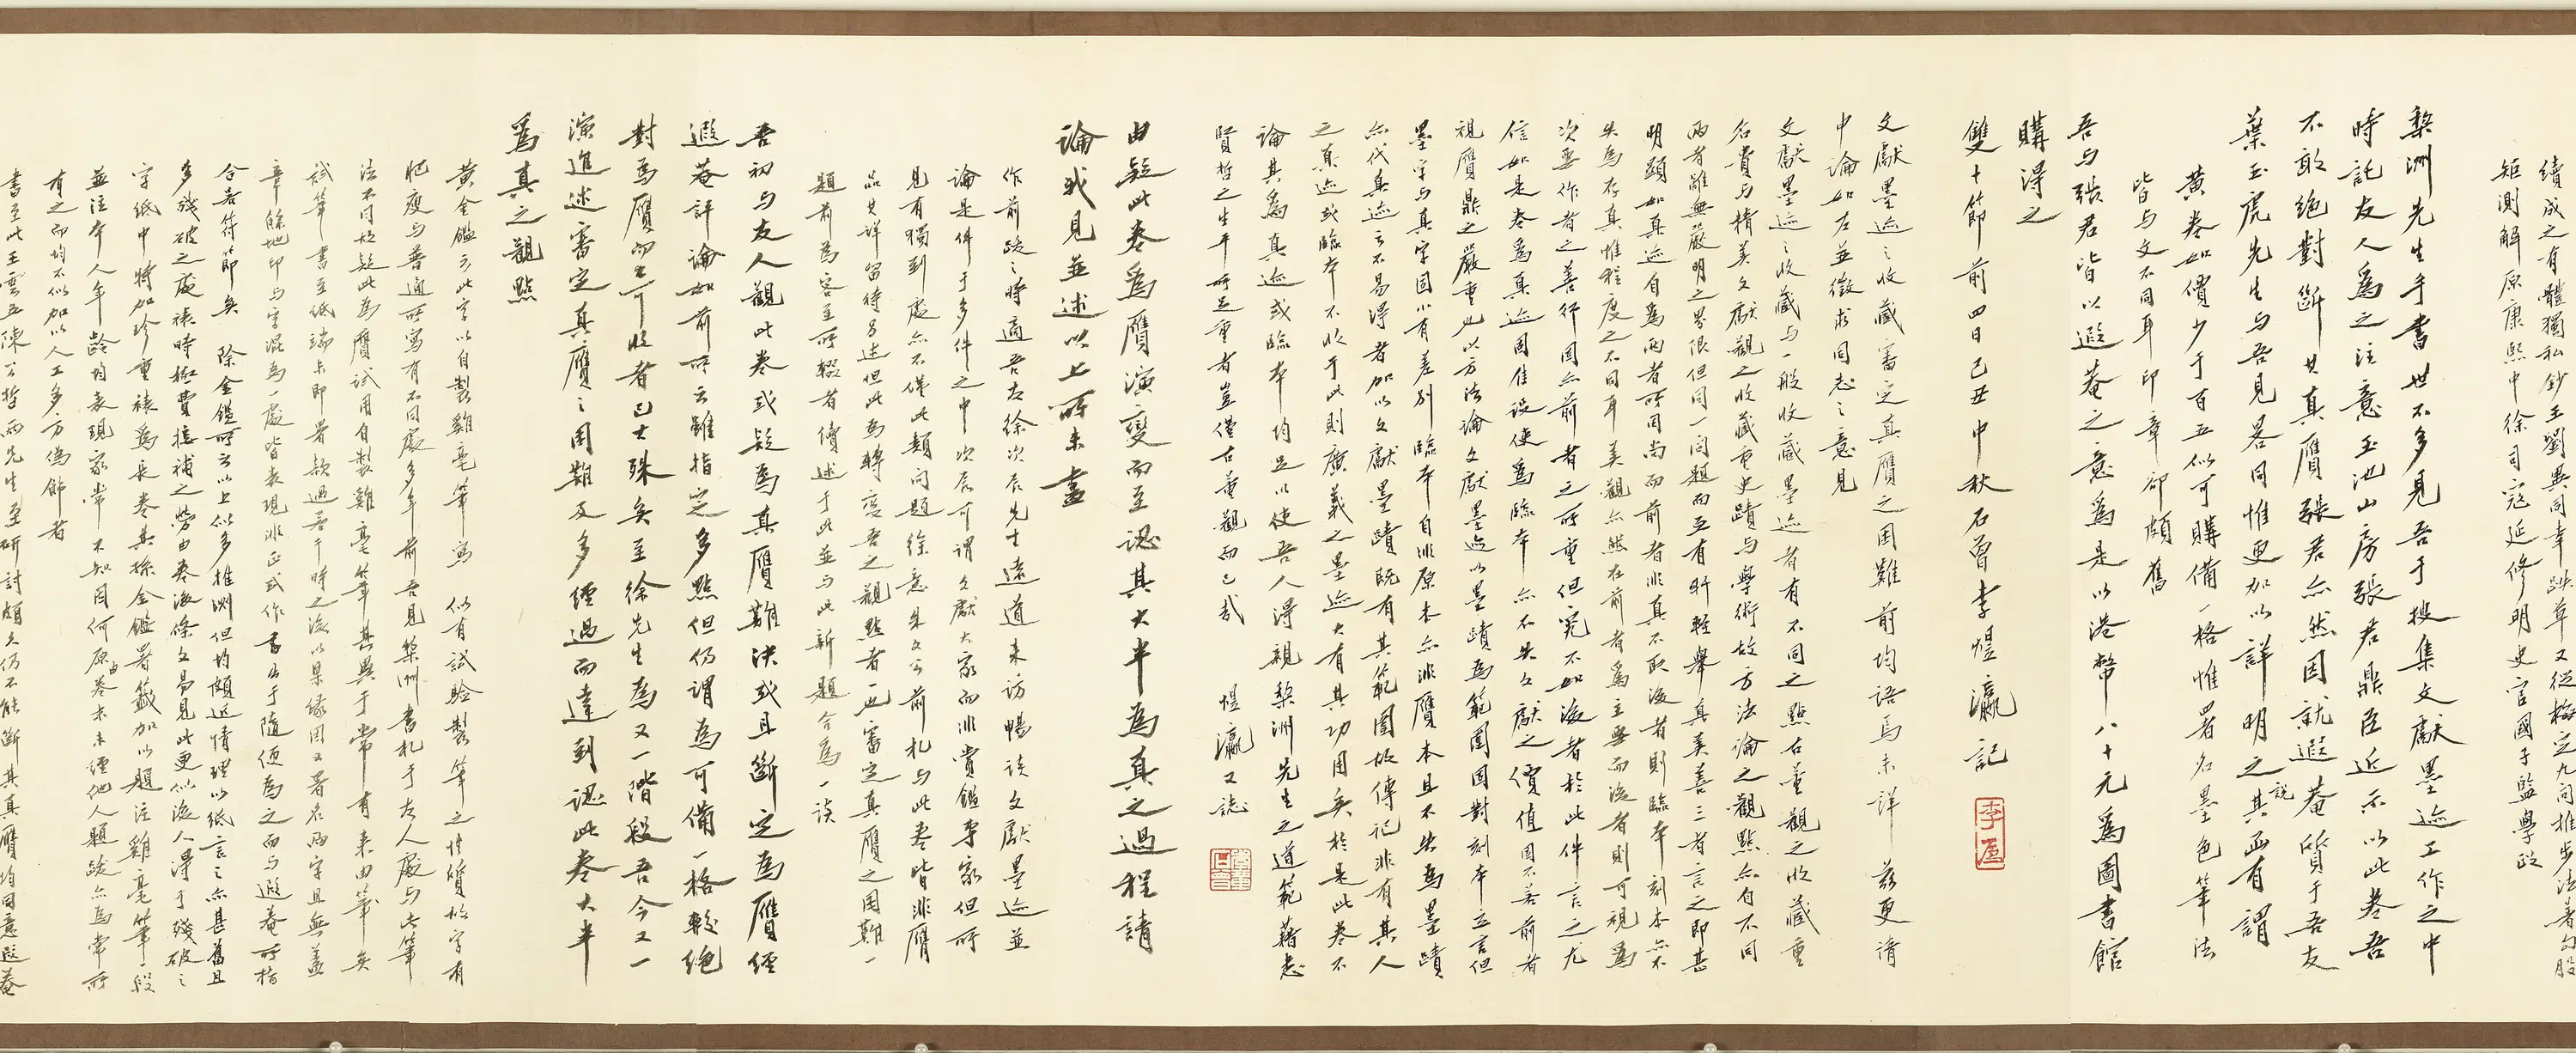 續成之有體獨私鈔王劉異同幸跌草又從梅定九問推步法著句股
矩測解原康熙中徐司寇延修明史官國子監學政
棃洲先生手書世不多見吾于搜集文獻墨迹工作之中
時託友人為之注意玉池山房張君鼎臣近示以此卷吾
不敢絕對斷其真贋張君亦然因就遐菴質于吾友
葉玉虎先生与吾見畧同惟更加以詳明之說其函有謂
黃卷如價少于百五似可購備一格惟署名墨色筆法
皆与文不同耳印章卻頗舊
吾与張君皆以遐菴之意為是以港幣八十元為圖書館
購得之
雙十節前四日己丑中秋石曾李煜瀛記
李
文獻墨迹之收藏審定真贋之困難前均語焉未詳茲更清
中論如左並徵求同志之意見
文獻墨迹之收藏与一般收藏墨迹者有不同之點古董觀之收藏重
名貴与精美文獻觀之收藏重史蹟与學術故方法論之觀點亦自不同
兩者雖無嚴明之界限但同一問題而互有所輕舉真美善三者言之即甚
明顯如真迹自為兩者所同尚而前者非真不取後者則臨本刻本亦不
失為存真惟程度之不同耳美觀亦然在前者為主要而後者則可視為
次要作者之善行固亦前者之所重但究不如後者於此件言之尤
信如是卷為真迹固佳設使為臨本亦不失文獻之價值固不若前者
視贋鼎之嚴重也以方法論文獻墨迹以墨蹟為範圍固對刻本立言但
墨字与真字固小有差別臨本自非原本亦非贋本且不失為墨蹟
亦代真迹云不易得者加以文獻墨蹟既有其範圍故傳記非有其人
之真迹或臨本不收于此則廣義之墨迹大有其功用矣於是此卷不
論其為真迹或臨本均足以使吾人得親棃洲先生之道範藉志
賢哲之生平所足重者豈僅古董觀而已哉 煜瀛又誌
由疑此卷為贋演變而至認其大半為真之過程請
論或見並述以上所未盡
作前跋之時適吾友徐次辰先生遠道來訪暢談文獻墨迹並
論是件于多件之中次辰可謂文獻大家而非賞鑑專家但所
見有獨到處亦不僅此類問題徐意朱文公前札与此卷皆非贋
品其詳留待另述但此為轉變吾之觀點者一也審定真贋之困難一
題前為客至所輟者續述于此並与此新題合為一談
吾初与友人觀此卷或疑為真贋難決或且斷定為贋經
遐菴評論如前所云雖指定多點但仍謂為可備一格較絕
對為贋而不可收者已大殊矣至徐先生為又一階段吾今又一
演進述審定真贋之困難及多經過而達到認此卷大半
為真之觀點
黃金鑑云此字以自製雞毫筆寫 似有試驗製筆之性質故字有
肥瘦与普通所寫有不同處多年前吾見棃洲書札于友人處与此筆
法不同故疑此為贋試用自製雞毫筆其異于常有來由筆矣
試筆書至紙端卡即署款過若干時之後以果緣因又署名兩字且無蓋
章餘地印与字混為一處皆表現非正式作書出于隨便為之而与遐菴所指
合若符節矣 除金鑑所云以上似多推測但均頗近情理以紙言之亦甚舊且
多殘破之處裱時極費接補之勞由卷後條文易見此更似後人得于殘破之
字紙中特加珍重裱為長卷其孫金鑑署籤加以題注雞毫筆一段
並注本人年齡均表現家常不知因何原由卷未未經他人題跋亦為常所
有之而均不似加以人工多方偽飾者
書至此王雲五陳公哲兩先生至研討頗久仍不能斷其真贋均同意遐菴